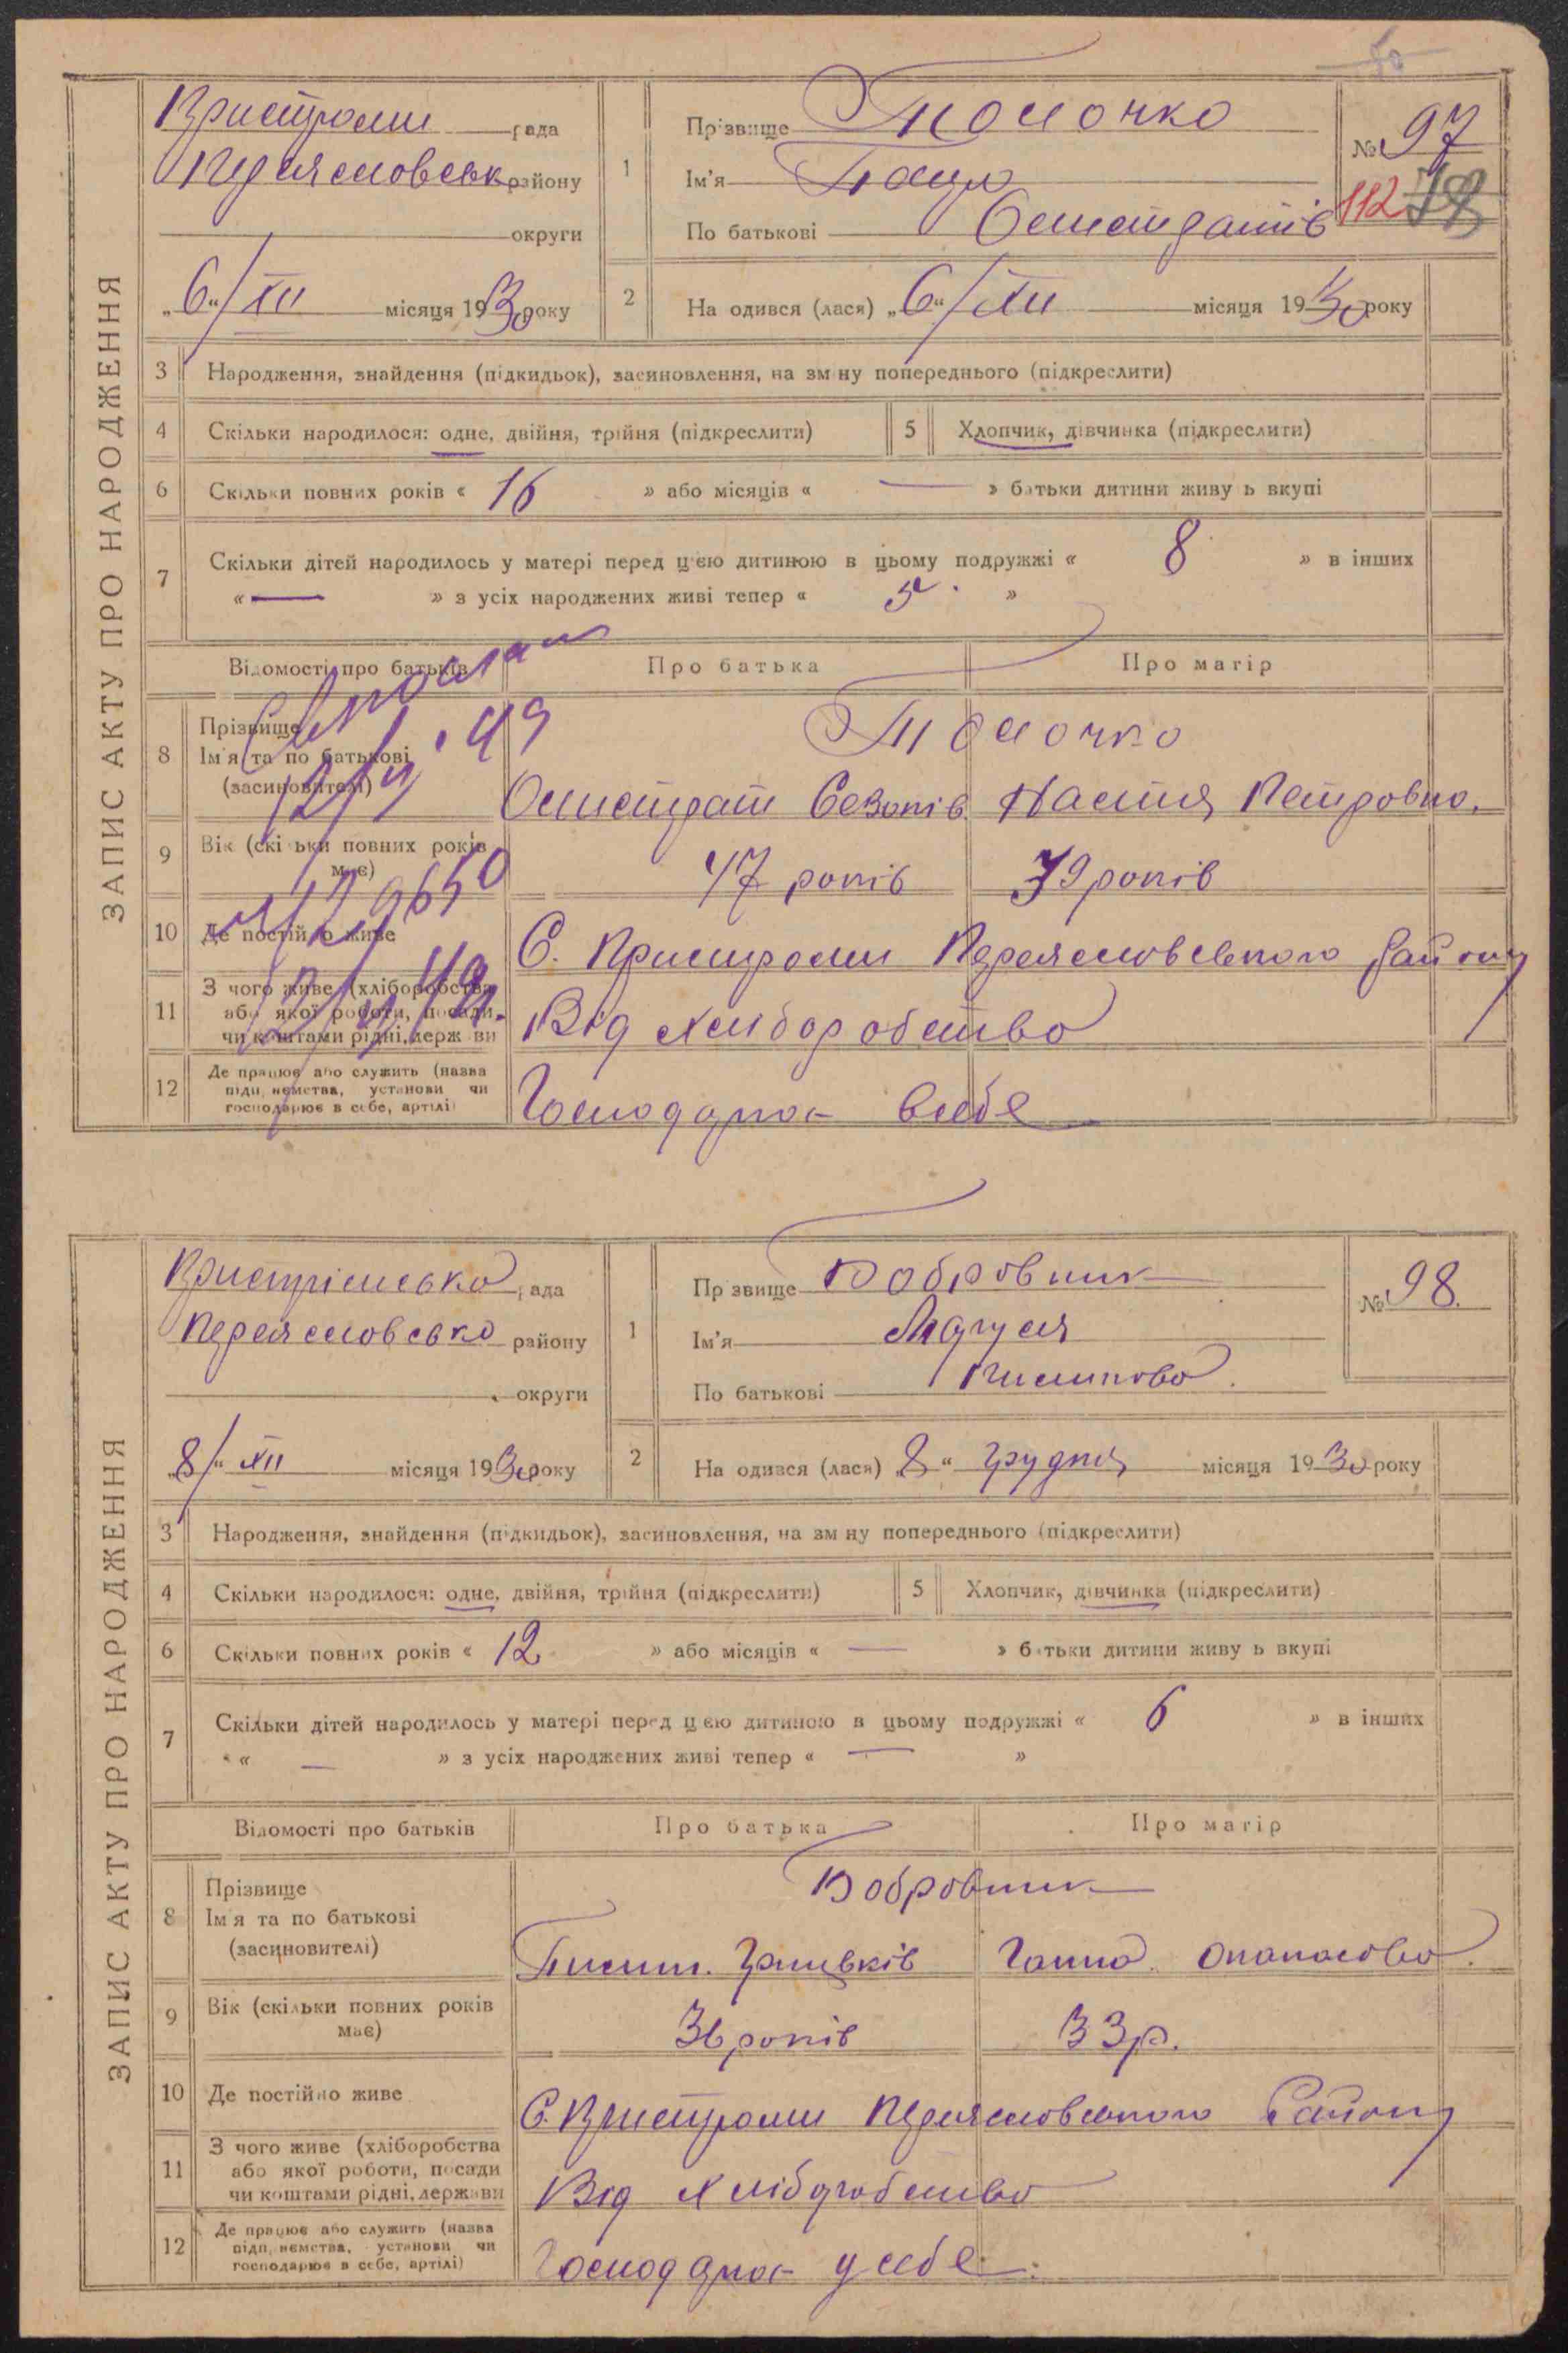 ЗАПИС АКТУ ПРО НАРОДЖЕННЯ
Пристроми рада
Переяславськ району
округи
„6“/XII місяця 1930 року
1 Прізвище Толочко
Ім'я
По батькові
№ 97
112
2 На одився (лася) „6“/XII місяця 1930 року
3 Народження, знайдення (підкидьок), засиновлення, на зміну попереднього (підкреслити)
4 Скільки народилося: одне, двійня, трійня (підкреслити) 5 Хлопчик, дівчинка (підкреслити)
6 Скільки повних років « 16 » або місяців « — » батьки дитини живуть вкупі
7 Скільки дітей народилось у матері перед цією дитиною в цьому подружжі « 8 » в інших
« — » з усіх народжених живі тепер « 5 »
Відомості про батьків Про батька Про матір
8 Прізвище
Ім'я та по батькові
(засиновителі)
Толочко
Настия Петровна.
9 Вік (скільки повних років має)
47 років 39 років
10 Де постійно живе
С. Пристроми Переяславського району
11 З чого живе (хліборобства
або якої роботи, посади
чи коштами рідні, держави
Від хліборобство
12 Де працює або служить (назва
підприємства, установи чи
господарює в себе, артілі)
Господарює в себе
ЗАПИС АКТУ ПРО НАРОДЖЕННЯ
Пристрімсько рада
Переяславсько району
округи
„8“/XII місяця 1930 року
1 Прізвище Бобровник
Ім'я Маруся
По батькові
№ 98.
2 На одився (лася) „8“ грудня місяця 1930 року
3 Народження, знайдення (підкидьок), засиновлення, на зміну попереднього (підкреслити)
4 Скільки народилося: одне, двійня, трійня (підкреслити) 5 Хлопчик, дівчинка (підкреслити)
6 Скільки повних років « 12 » або місяців « — » батьки дитини живуть вкупі
7 Скільки дітей народилось у матері перед цією дитиною в цьому подружжі « 6 » в інших
« — » з усіх народжених живі тепер « — »
Відомості про батьків Про батька Про матір
8 Прізвище
Ім'я та по батькові
(засиновителі)
Бобровник
Ганна Опанасовна.
9 Вік (скільки повних років
має)
36 років 33 р.
10 Де постійно живе
С. Пристроми Переяславського Району
11 З чого живе (хліборобства
або якої роботи, посади
чи коштами рідні, держави
Від хліборобство
12 Де працює або служить (назва
підприємства, установи чи
господарює в себе, артілі)
Господарює у себе